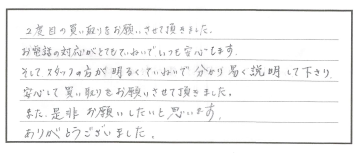 2度目の買い取りをお願いさせて頂きました。
お電話の対応がとてもていねいでいつも安心します。
そしてスタッフの方が明るくていねいで分かり易く説明して下さり
安心して買い取りをお願いさせて頂きました。
また、是非お願いしたいと思います。
ありがとうございました。